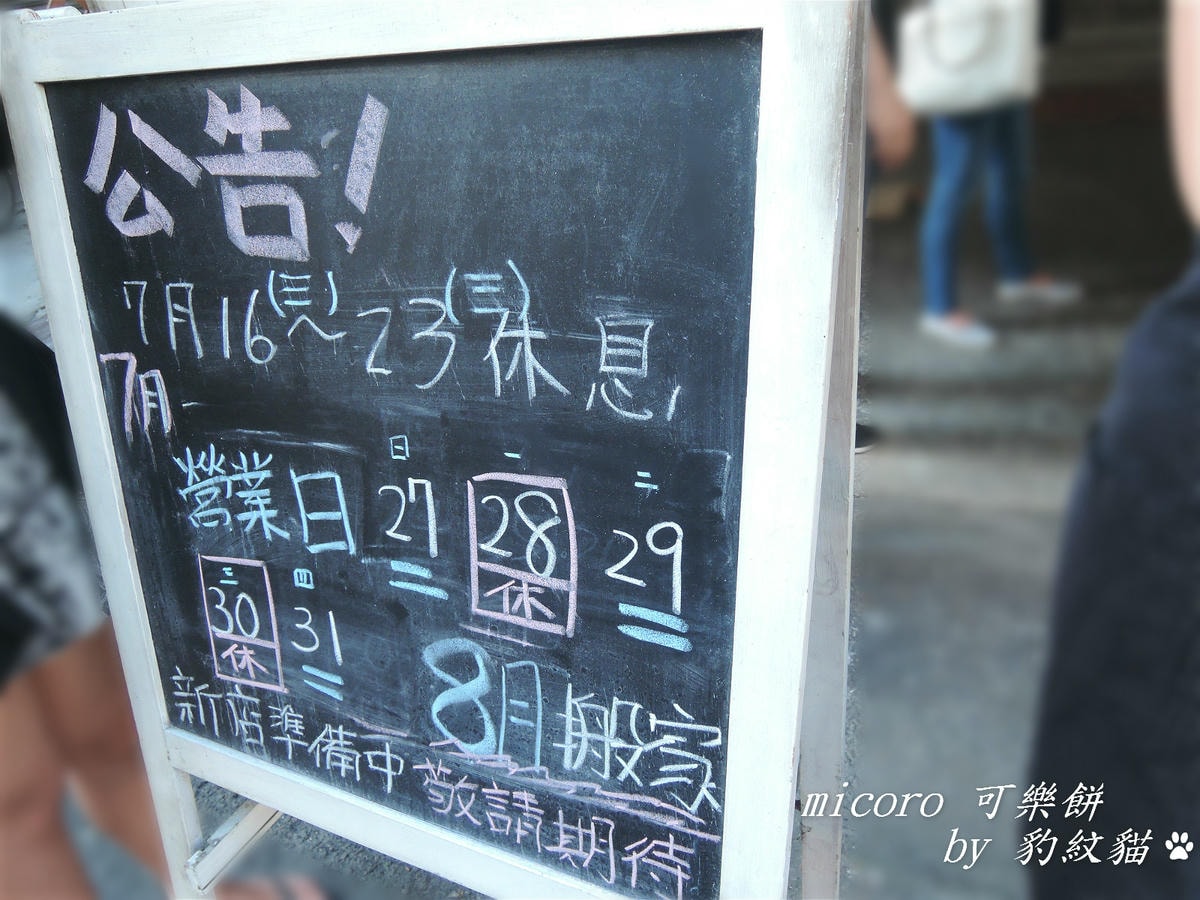 公告!
7月16(三)~23(三)休息,
7月
營業日 日27 一28休 二29
三30休 四31 8月搬家
新店準備中 敬請期待
micoro 可樂餅
by 豹紋貓